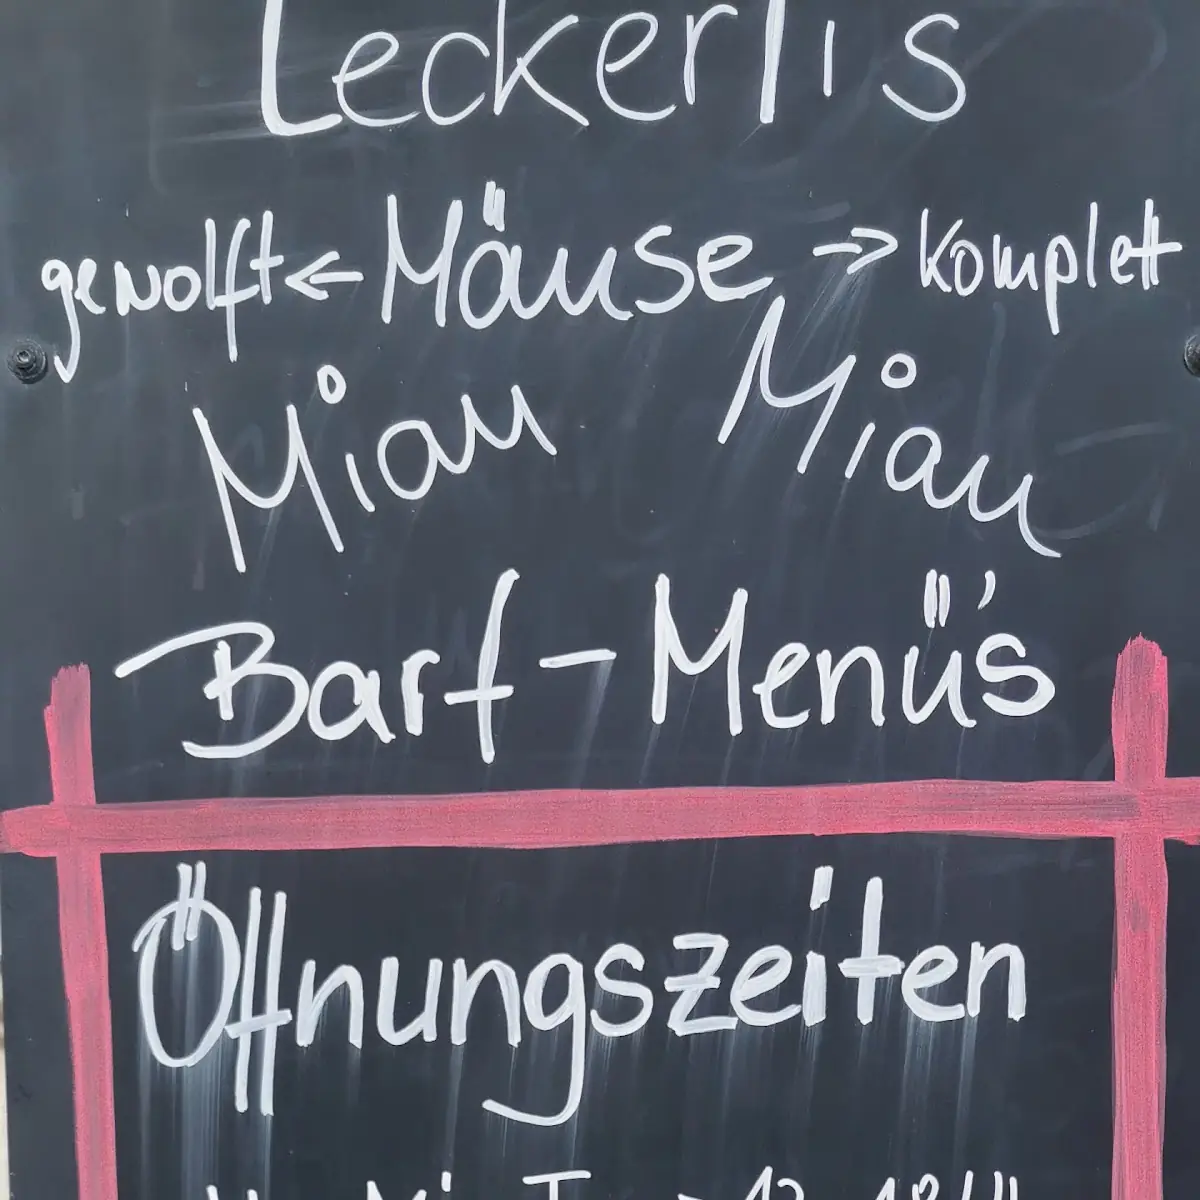 Leckerlis
gewolft ← Mäuse → komplett
Miau Miau
Barf-Menü's
Öffnungszeiten